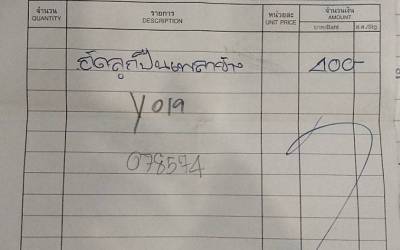 จำนวน รายการ หน่วยละ จำนวนเงิน
QUANTITY DESCRIPTION UNIT PRICE AMOUNT
บาท/Baht ส.ต./Stg
อัดลูกปืนเพลาข้าง 400-
078574